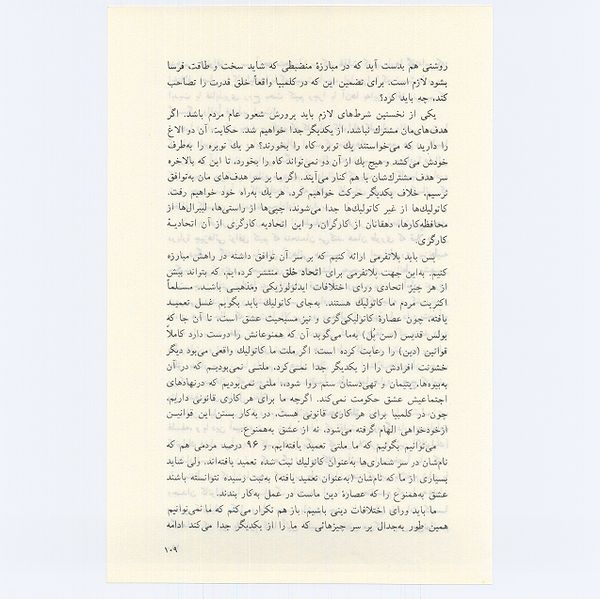 روشنی هم بدست آید که در مبارزهٔ منضبطی که شاید سخت و طاقت فرسا
بشود لازم است. برای تضمین این که در کلمبیا واقعاً خلق قدرت را تصاحب
کند، چه باید کرد؟
یکی از نخستین شرط‌های لازم باید پرورش شعور عام مردم باشد. اگر
هدف‌های‌مان مشترك نباشد، از یکدیگر جدا خواهیم شد. حکایت آن دو الاغ
را دارید که می‌خواستند یك توبره کاه را بخورند؟ هر یك توبره را به‌طرف
خودش می‌کشد و هیچ یك از آن دو نمی‌تواند کاه را بخورد، تا این که بالاخره
سر هدف مشترك‌شان با هم کنار می‌آیند. اگر ما بر سر هدف‌های مان به‌توافق
نرسیم، خلاف یکدیگر حرکت خواهیم کرد، هر یك به‌راه خود خواهیم رفت.
کاتولیك‌ها از غیر کاتولیك‌ها جدا می‌شوند، چپی‌ها از راستی‌ها، لیبرال‌ها از
محافظه‌کارها، دهقانان از کارگران، و این اتحادیه کارگری از آن اتحادیهٔ
کارگری.
پس باید پلاتفرمی ارائه کنیم که بر سر آن توافق داشته در راهش مبارزه
کنیم. به‌این جهت پلاتفرمی برای اتحاد خلق منتشر کرده‌ایم، که بتواند بیش
از هر چیز اتحادی ورای اختلافات ایدئولوژیکی ومذهبی باشد. مسلماً
اکثریت مردم ما کاتولیك هستند. به‌جای کاتولیك باید بگویم غسل تعمید
یافته، چون عصارهٔ کاتولیکی‌گری و نیز مسیحیت عشق است، تا آن جا که
پولس قدیس (سن پُل) به‌ما می‌گوید آن که همنوعانش را دوست دارد کاملاً
قوانین (دین) را رعایت کرده است. اگر ملت ما کاتولیك واقعی می‌بود دیگر
خشونت افرادش را از یکدیگر جدا نمی‌کرد، ملتی نمی‌بودیم که در آن
به‌بیوه‌ها، یتیمان و تهی‌دستان ستم روا شود، ملتی نمی‌بودیم که درنهادهای
اجتماعیش عشق حکومت نمی‌کند. اگرچه ما برای هر کاری قانونی داریم،
چون در کلمبیا برای هر کاری قانونی هست، در به‌کار بستن این قوانین
ازخودخواهی الهام گرفته می‌شود، نه از عشق به‌همنوع.
می‌توانیم بگوئیم که ما ملتی تعمید یافته‌ایم، و ۹۶ درصد مردمی هم که
نام‌شان در سر شماری‌ها به‌عنوان کاتولیك ثبت شده تعمید یافته‌اند، ولی شاید
بسیاری از ما که نام‌شان (به‌عنوان تعمید یافته) به‌ثبت رسیده نتوانسته باشند
عشق به‌همنوع را که عصارهٔ دین ماست در عمل به‌کار بندند.
ما باید ورای اختلافات دینی باشیم. باز هم تکرار می‌کنم که ما نمی‌توانیم
همین طور به‌جدال بر سر چیزهائی که ما را از یکدیگر جدا می‌کند ادامه
۱۰۹